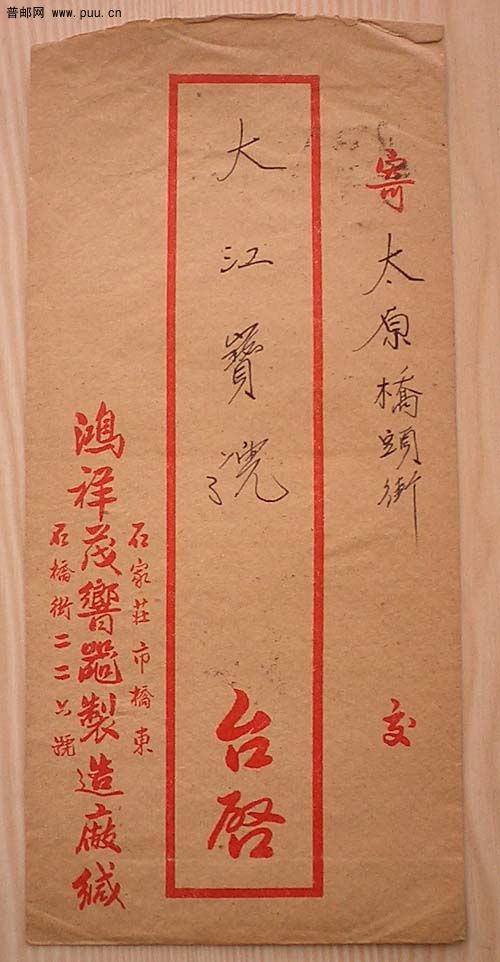 普邮网 www.puu.cn
寄太原橋頭街 交
大江寶
台啓
石家莊市橋東
石橋街二二六號
鴻祥茂響器製造廠緘